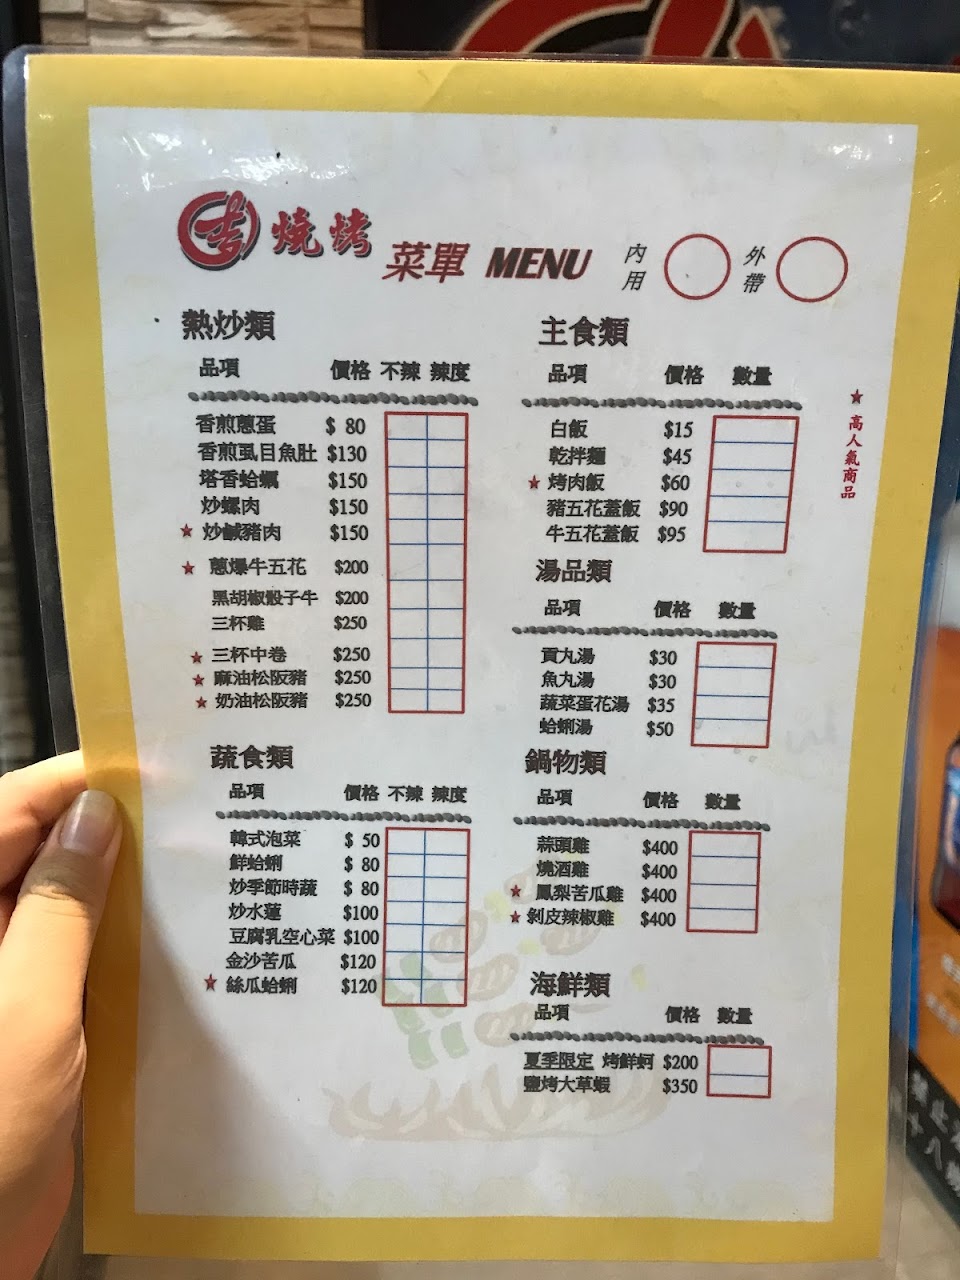 燒烤
菜單 MENU
內用
外帶
熱炒類
品項 價格 不辣 辣度
香煎蔥蛋 $ 80
香煎虱目魚肚 $130
塔香蛤蠣 $150
炒螺肉 $150
★ 炒鹹豬肉 $150
★ 蔥爆牛五花 $200
黑胡椒骰子牛 $200
三杯雞 $250
★ 三杯中卷 $250
★ 麻油松阪豬 $250
★ 奶油松阪豬 $250
蔬食類
品項 價格 不辣 辣度
韓式泡菜 $ 50
鮮蛤蜊 $ 80
炒季節時蔬 $ 80
炒水蓮 $100
豆腐乳空心菜 $100
金沙苦瓜 $120
★ 絲瓜蛤蜊 $120
主食類
品項 價格 數量
白飯 $15
乾拌麵 $45
★ 烤肉飯 $60
豬五花蓋飯 $90
牛五花蓋飯 $95
★高人氣商品
湯品類
品項 價格 數量
貢丸湯 $30
魚丸湯 $30
蔬菜蛋花湯 $35
蛤蜊湯 $50
鍋物類
品項 價格 數量
蒜頭雞 $400
燒酒雞 $400
★ 鳳梨苦瓜雞 $400
★ 剝皮辣椒雞 $400
海鮮類
品項 價格 數量
夏季限定 烤鮮蚵 $200
鹽烤大草蝦 $350